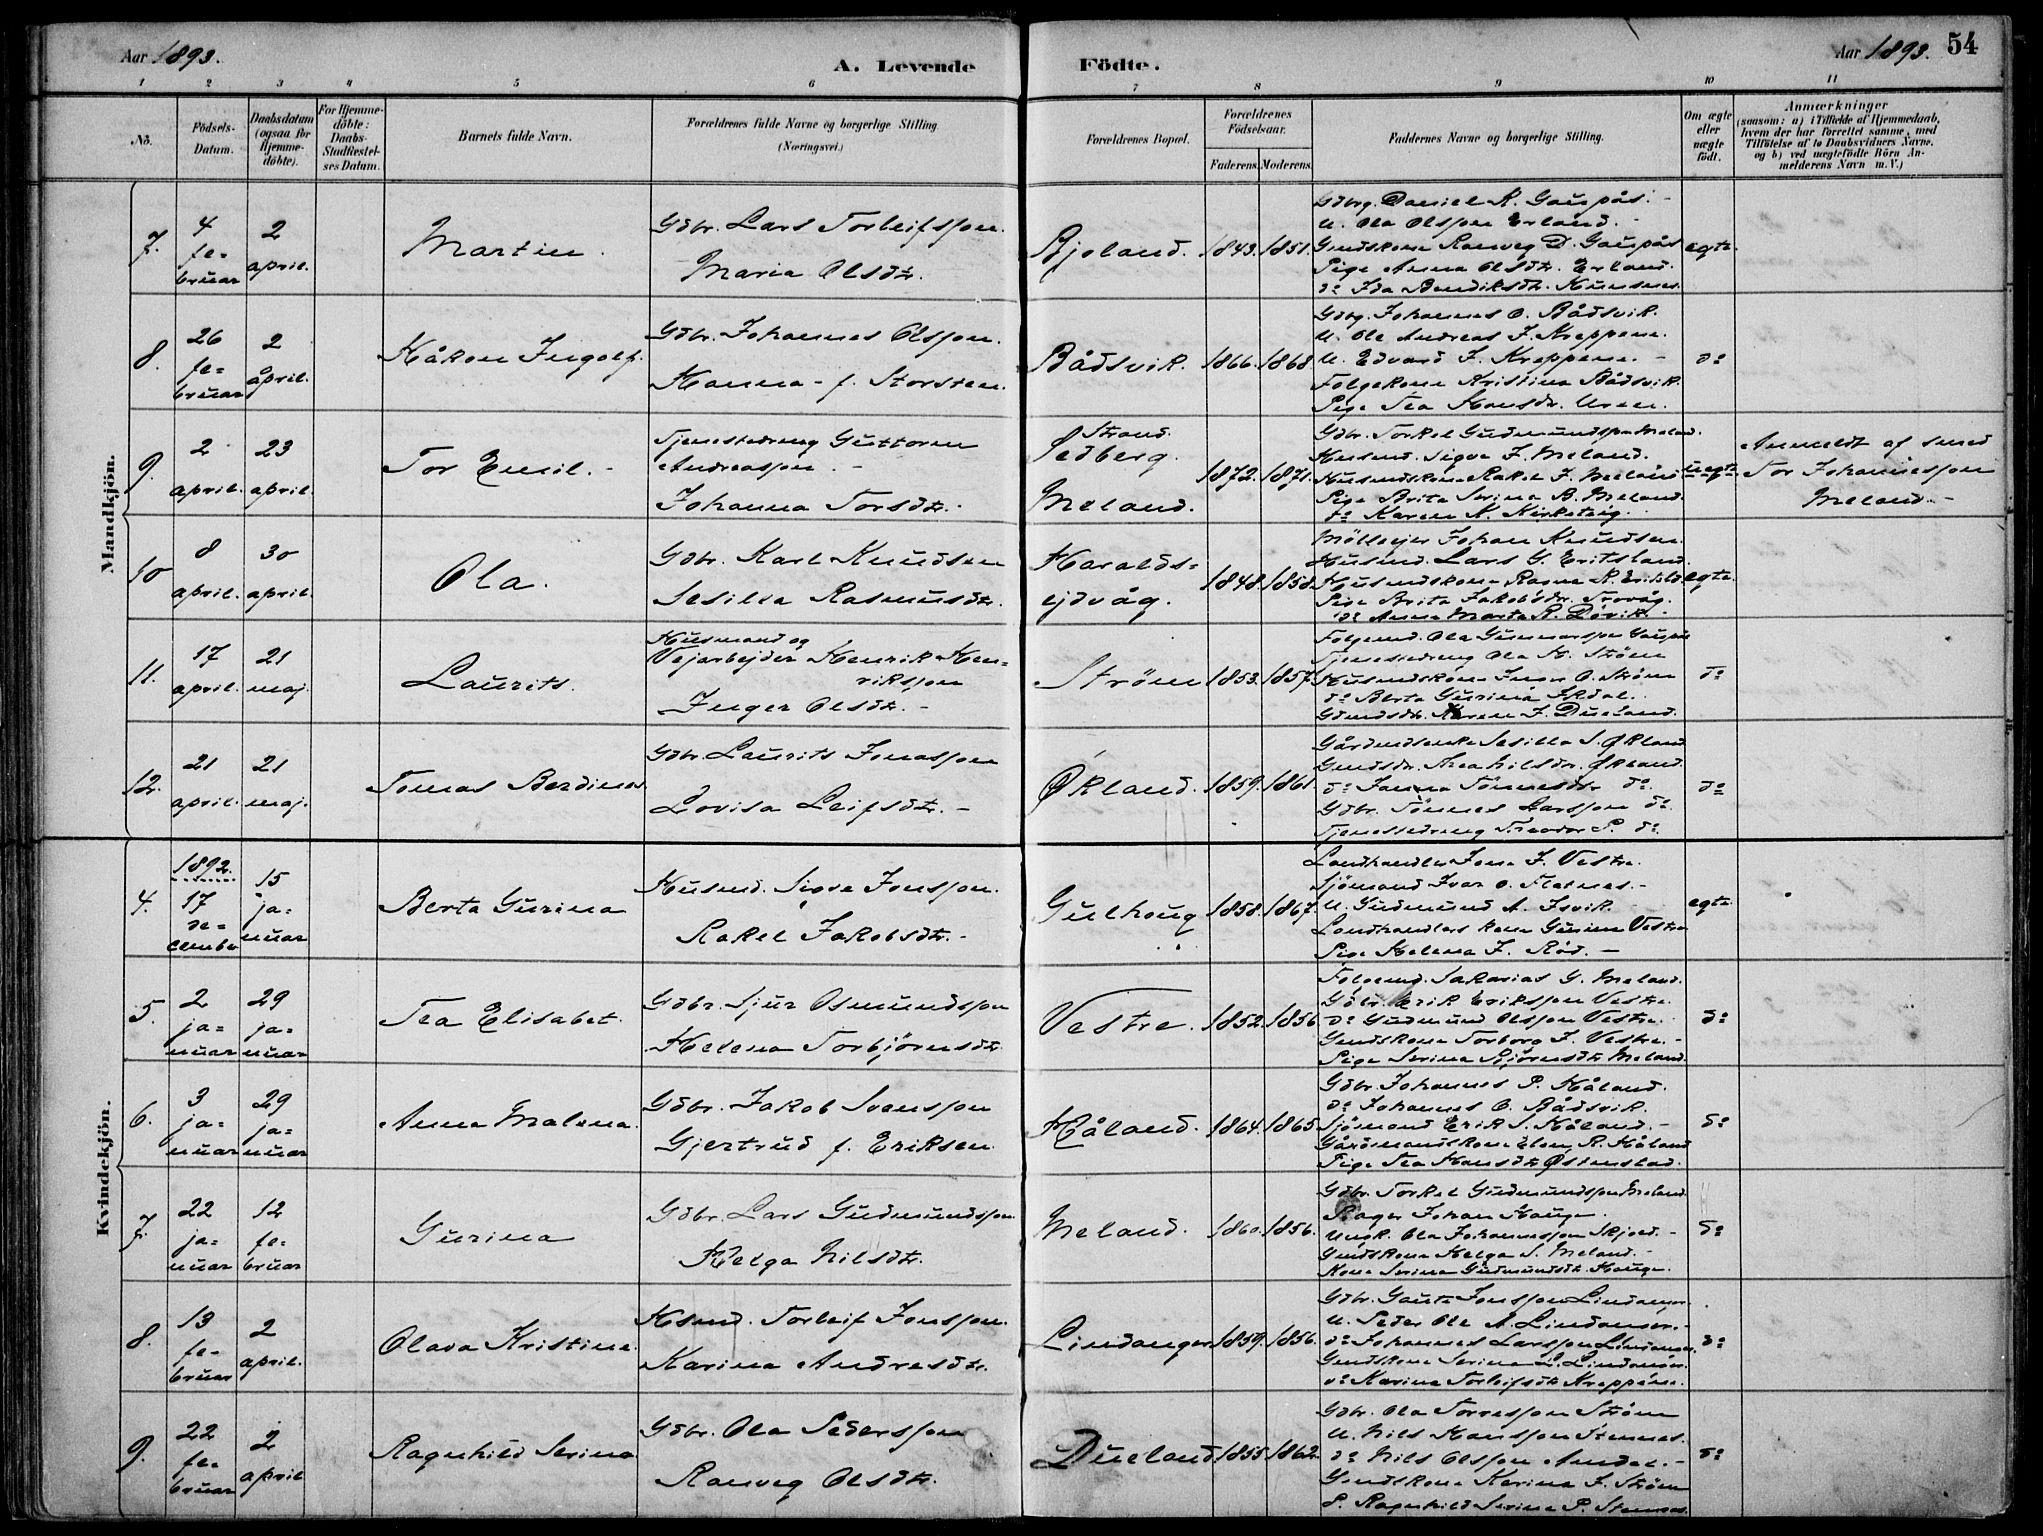 Aar 1893.
A. Levende
Födte.
Aar 1893. 54
1 2 3 4 5 6 7 8 9 10 11
No.
Födsels-Datum.
Daabsdatum (ogsaa for Hjemme-döbte).
For Hjemme-döbte: Daabs-Stadfæstel-ses Datum.
Barnets fulde Navn.
Forældrenes fulde Navne og borgerlige Stilling
(Næringsvei.)
Forældrenes Bopæl.
Forældrenes Födselsaar.
Faderens. Moderens.
Faddernes Navne og borgerlige Stilling.
Om ægte eller uægte födt.
Anmærkninger
(saasom: a) i Tilfælde af Hjemmedaab,
hvem der har forrettet samme, med
Tilföielse af to Daabsvidners Navne,
og b) ved uægtefödte Börn An-
melderens Navn m.V.)
Mandkjön.
7. 4 fe-bruar 2 april. Martin. Gdbr. Lars Torleifsson.
Maria Olsdtr.
Bjoland. 1843. 1851.
Gdbrg. Daniel K. Gaupås. -
U. Ola Olsson Erland. -
Gmdskone Ranveg D. Gaupås
Pige Anna Olsdtr. Erland.
do Ida Bendiksdtr.
egte.
8. 26 fe-bruar 2 april. Håkon Ingolf. Gdbr. Johannes Olsson.
Hanna - f. Storsten.
Bådsvik. 1866. 1868
Gdbrg. Johannes O. Bådsvik.
U. Ole Andreas J. Kreppene.
U. Edvard J. Kreppene. -
Folgekone Kristina Bådsvik.
Pige Tea Hansdtr.
do
9. 2 april. 23 april. Tor Emil. - Tjenestedreng Guttorm
Andreasson. -
Johanna Torsdtr. -
Strand.
Sedberg.
Meland.
1872. 1871.
Gdbr. Torkel Gudmundsson Meland.
Husmd. Sigva J. Meland.
Husmdskone Rakel J. Meland
Pige Brita Serina B. Meland
do Karen N. Kirketeig.
uegte
Anmeldt af smed
Tor Johannesson
Meland -
10 8 april. 30 april. Ola. Gdbr. Karl Knudsen
Sesilia Rasmusdtr.
Haralds-
ejdvåg.
1848. 1858.
Möllejer Johan Knudsen
Husmd. Lars G. Eritsland
Pige Brita Jakobsdtr.
do Anna Marta R.
egte.
11. 17 april. 21 maj. Laurits. Husmand og
Vejarbejder Henrik Hen-
riksson
Inger Olsdtr. -
Ström 1853. 1857.
Folgemd. Ola Gunnarsson Gaupås
Tjenestedreng Ola H. Ström
Husmdskone Inger O. Ström
do Berta Gurina
Gdmdsdtr. Karen J. Dueland.
do
12. 21 april. 21 maj. Tomas Berdines. Gdbr. Laurits Jonasson
Lovisa Leifsdtr. -
Økland. 1859. 1861.
Gårdmdsenke Sesilla S. Økland
Gmdsdtr. Anna Nilsdtr. Økland
do Janna Tönnesdtr do.
Gdbr. Tönnes Larsson do.
Tjenestedreng Theodor P. do.
do
Kvindekjön.
4. 1892. 17 de-cember 15 ja-nuar Berta Gurina Husmd. Sigva Jonsson.
Rakel Jakobsdtr. -
Gulhoug 1858. 1867.
Landhandler Jone J. Vestre.
Sjömand Ivar O. Flatnes. -
U. Gudmund A. Isvik. -
Landhandlers kone Gurina Vestre
Pige Helena J. Röd. -
egte
5. 2 ja-nuar 29 ja-nuar Tea Elisabet. Gdbr. Sjur Osmundsson
Helena Torbjörnsdtr.
Vestre. 1852. 1856
Folgemd. Sakarias G. Meland.
Gdbr. Erik Eriksson Vestre.
do Gudmund Olsson Vestre.
Gmdskone Torborg J. Vestre. -
Pige Serina Bjørnsdtr Meland.
do
6. 3 ja-nuar 29 ja-nuar Anna Malena. Gdbr. Jakob Svensson
Gjertrud f. Eriksen.
Håland. 1864. 1865
Gdbr. Johannes P. Håland.
do Johannes O. Bådsvik.
Sjömand Erik S. Håland. -
Gårdmandskone Elen R. Håland
Pige Tea Hansdtr Østenstad.
do
7. 22 ja-nuar 12 fe-bruar Gurina Gdbr. Lars Gudmundsson.
Helga Nilsdtr.
Meland. 1860. 1856.
Gdbr. Torkel Gudmundsson Meland
Bager Johan Hauge.
Ungk. Ola Johannesson Skjold. -
Gmdskone Helga S. Meland. -
Kone Serina Gudmundsdtr. Hauge.
do
8. 13 fe-bruar 2 april. Olava Kristina. Husmd. Torleif Jonsson.
Karina Andreasdtr.
Lindanger 1859. 1856.
Gdbr. Gauta Jonsson Lindanger.
U. Peder Ole A. Lindanger. -
do Johannes Larsson Lindanger.
Gmdskone Serina L. Lindanger.
do Karina Torleifsdtr Kreppene.
do
9. 22 fe-bruar 2 april Ragnhild Serina Gdbr. Ola Pedersson
Ranveg Olsdtr.
Dueland 1855 1862
Gdbr. Ola Torresson Ström
U. Nils Hansson Stemnes.
do Nils Olsson
Gmdskone Karina J. Ström
P. Ragnhild Serina P.
do